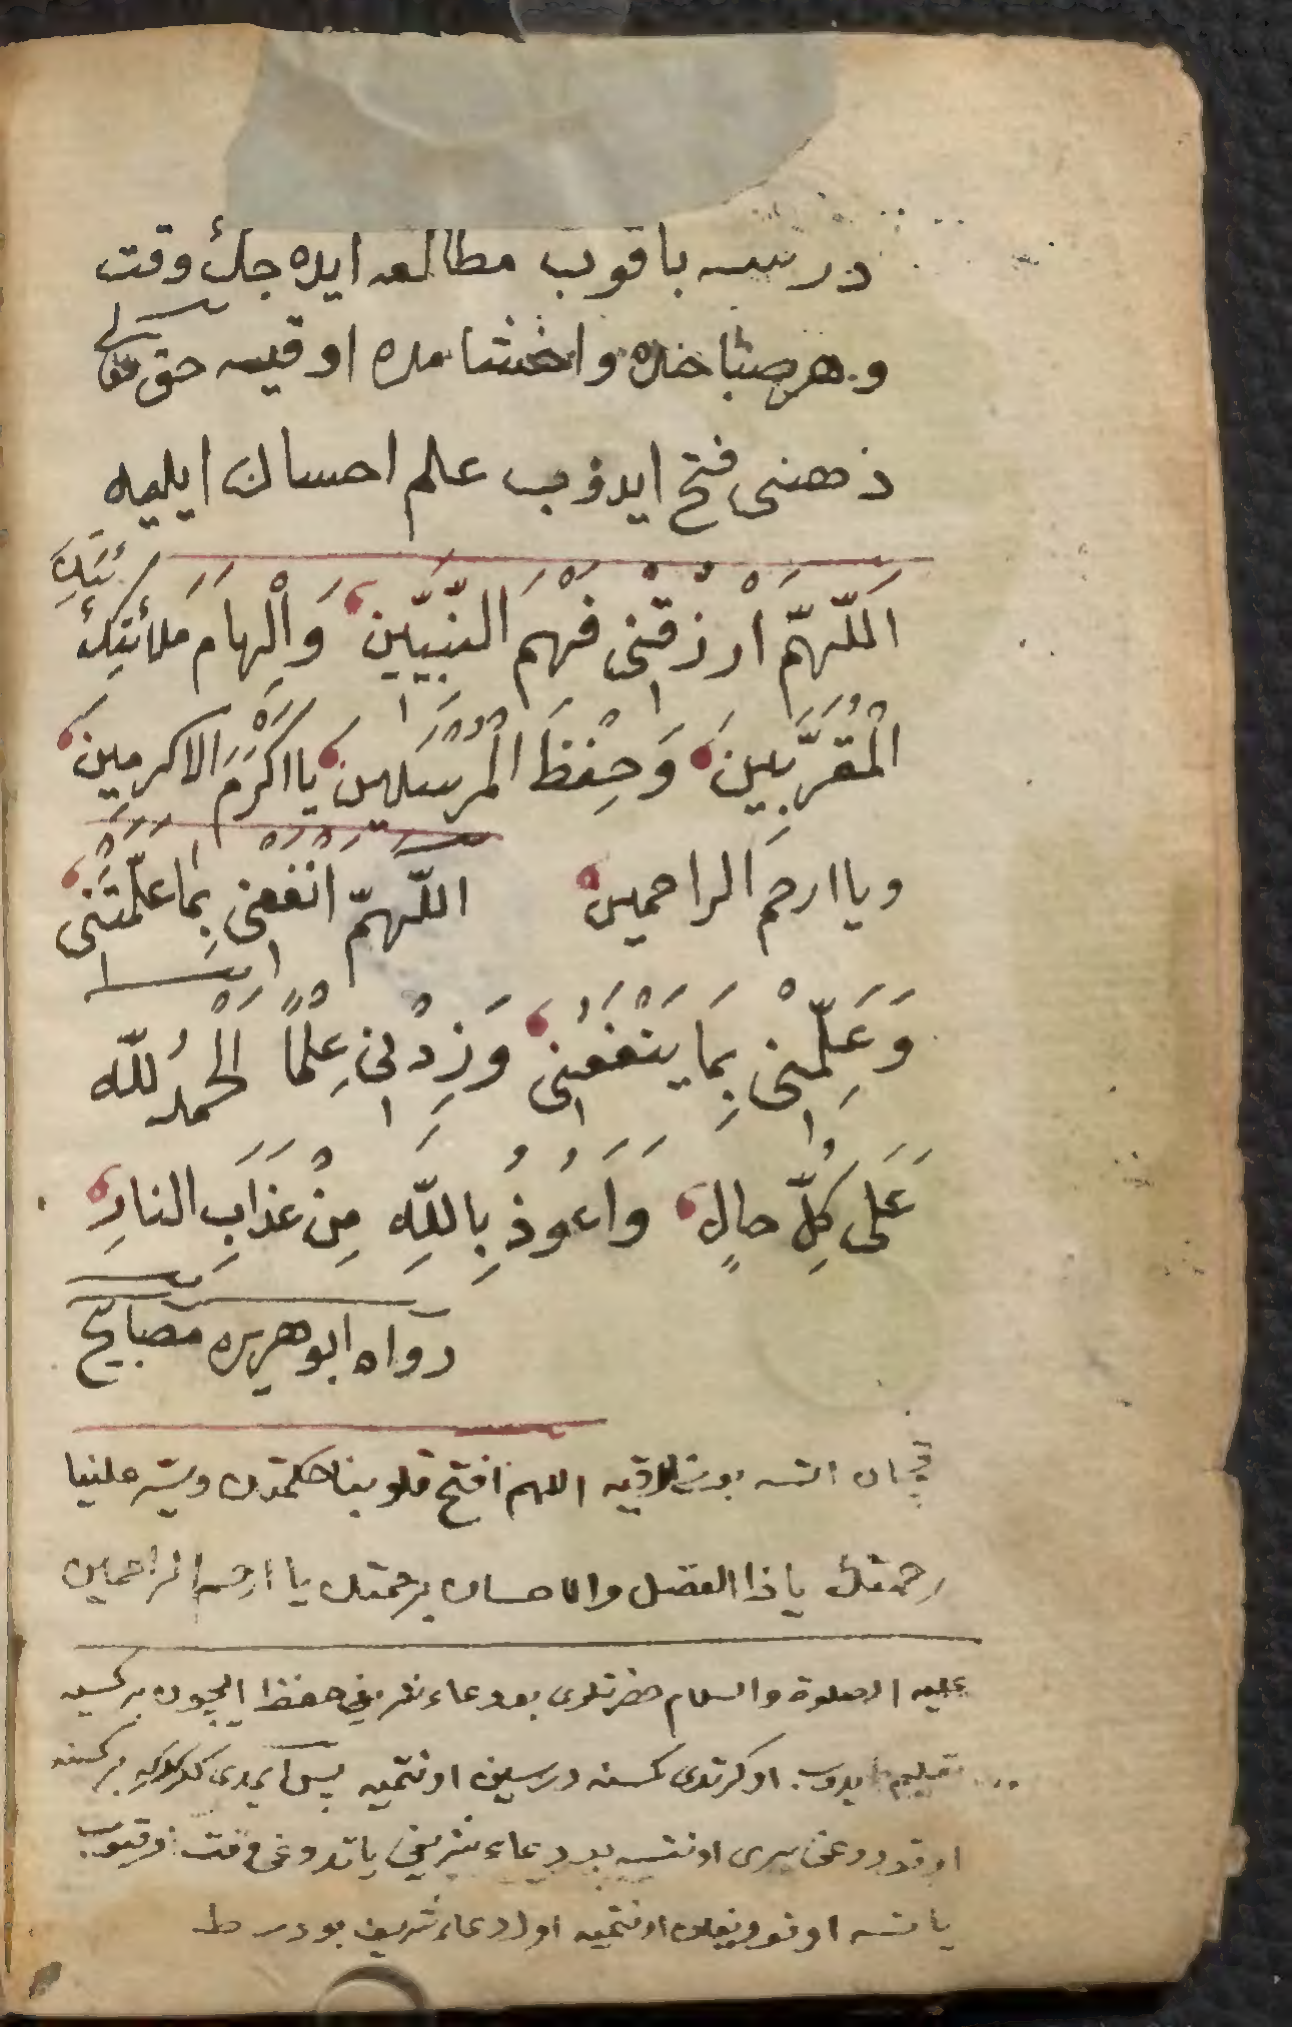 درسه باقوب مطالعه ايده جك وقت
و هر صباخده و اخشامده اوقيسه حق تعالى
ذهنى فتح ايدوب علم احسان ايليه
اَللّهمّ اَرْزُقْنى فَهْمَ النّبيّين وَالْهامَ مَلائتِكَ
ئكتِكَ
الْمُقَرَّبينَ وَحِفْظَ الْمُرْسَلين يا اكْرَمَ الاكرمين
ويا ارحم الراحمين اللّهمّ انْفَعْنى بِمَا علّمْتَنى
وَعَلِّمْنى بِمَا يَنْفَعُنى وَزِدْنى عِلْمًا الحمدُ للّه
عَلَى كُلِّ حالٍ وَاَعُوذُ بِاللّهِ مِنْ عَذَابِ النارِ
رواه ابو هريره مصابيح
اللهم افتح قلوبنا حكمتك ويسر علينا
رحمتك يا ذا الفضل والاحسان برحمتك يا ارحم الراحمين
عليه الصلوة والسلام حضرتلرى بو دعاء شريفى حفظ ايچون بر كمسيه
تعليم ايدوب اوكرتدى كمسنه درسين اونتميه پس ايمدى كركدركه بر كمسنه
اوقودوغى اونتسه بو دعاء شريفى ياتدوغى وقت اوقيوب
ياتسه اوقودوغين اونتميه اول دعاء شريف بودر ط